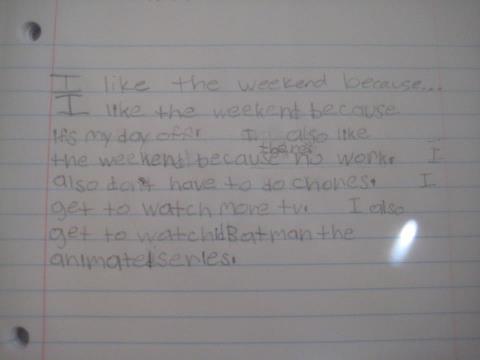 I like the weekend because...
I like the weekend because
it's my day offer. I also like
the weekend because theres no work. I
also don't have to do chores. I
get to watch more tv. I also
get to watch Batman the
animated series.